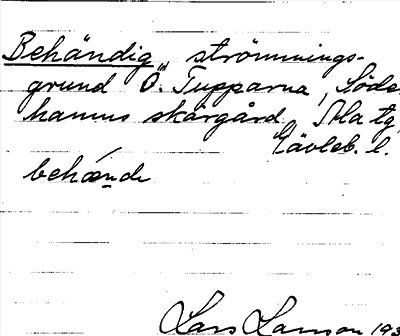 Behändig, strömmings-
grund Ö. Tupparna, Söder
hamns skärgård, Ala tg,
Gävleb. l.
behä́nde
Lars Larsson 193